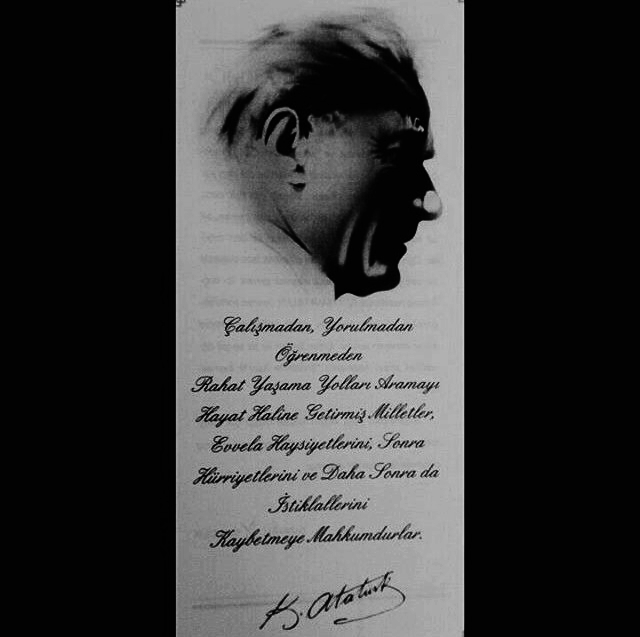 Çalışmadan, Yorulmadan
Öğrenmeden
Rahat Yaşama Yolları Aramayı
Hayat Haline Getirmiş Milletler,
Evvela Haysiyetlerini, Sonra
Hürriyetlerini ve Daha Sonra da
İstiklallerini
Kaybetmeye Mahkumdurlar.
K. Atatürk